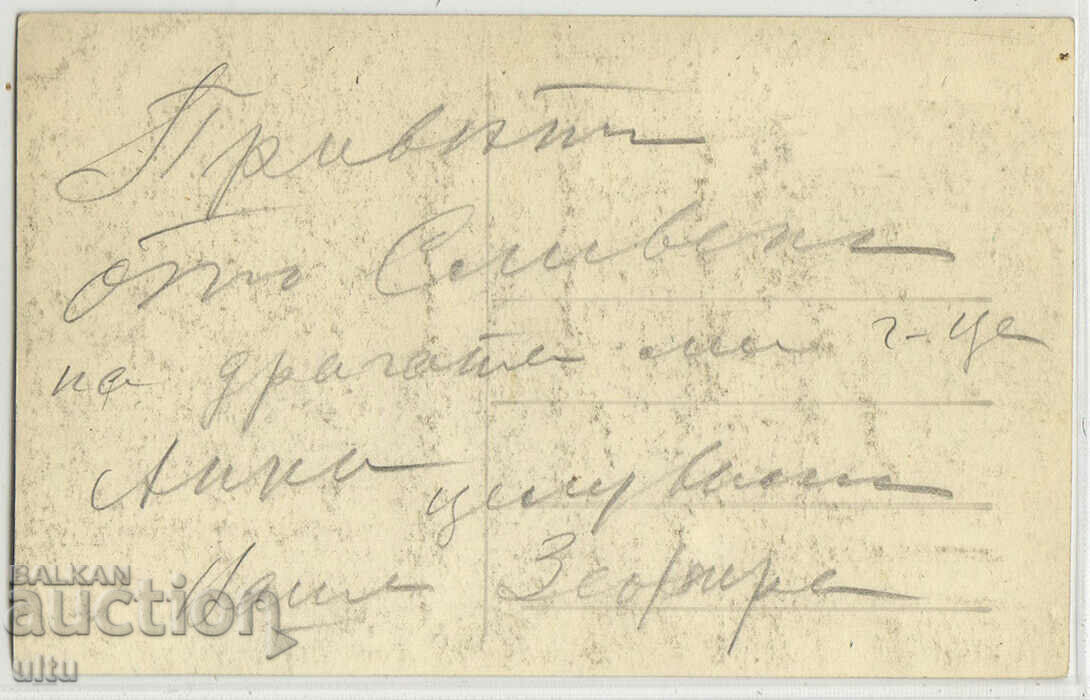 Привет
отъ Сливенъ
на драгата ми г-це
Анка целувам
Ваша Зафира
BALKAN
auction
ultu